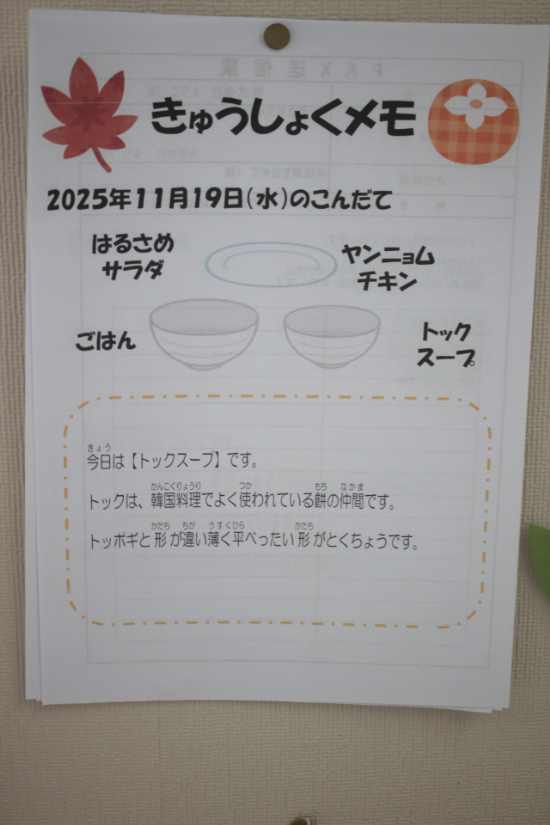 きゅうしょくメモ
2025年11月19日(水)のこんだて
はるさめ
サラダ
ヤンニョム
チキン
ごはん
トック
スープ
きょう
今日は【トックスープ】です。
かんこくりょうり つか もち なかま
トックは、韓国料理でよく使われている餅の仲間です。
かたち ちが うすくひら かたち
トッポギと形が違い薄く平べったい形がとくちょうです。
FAX送信票